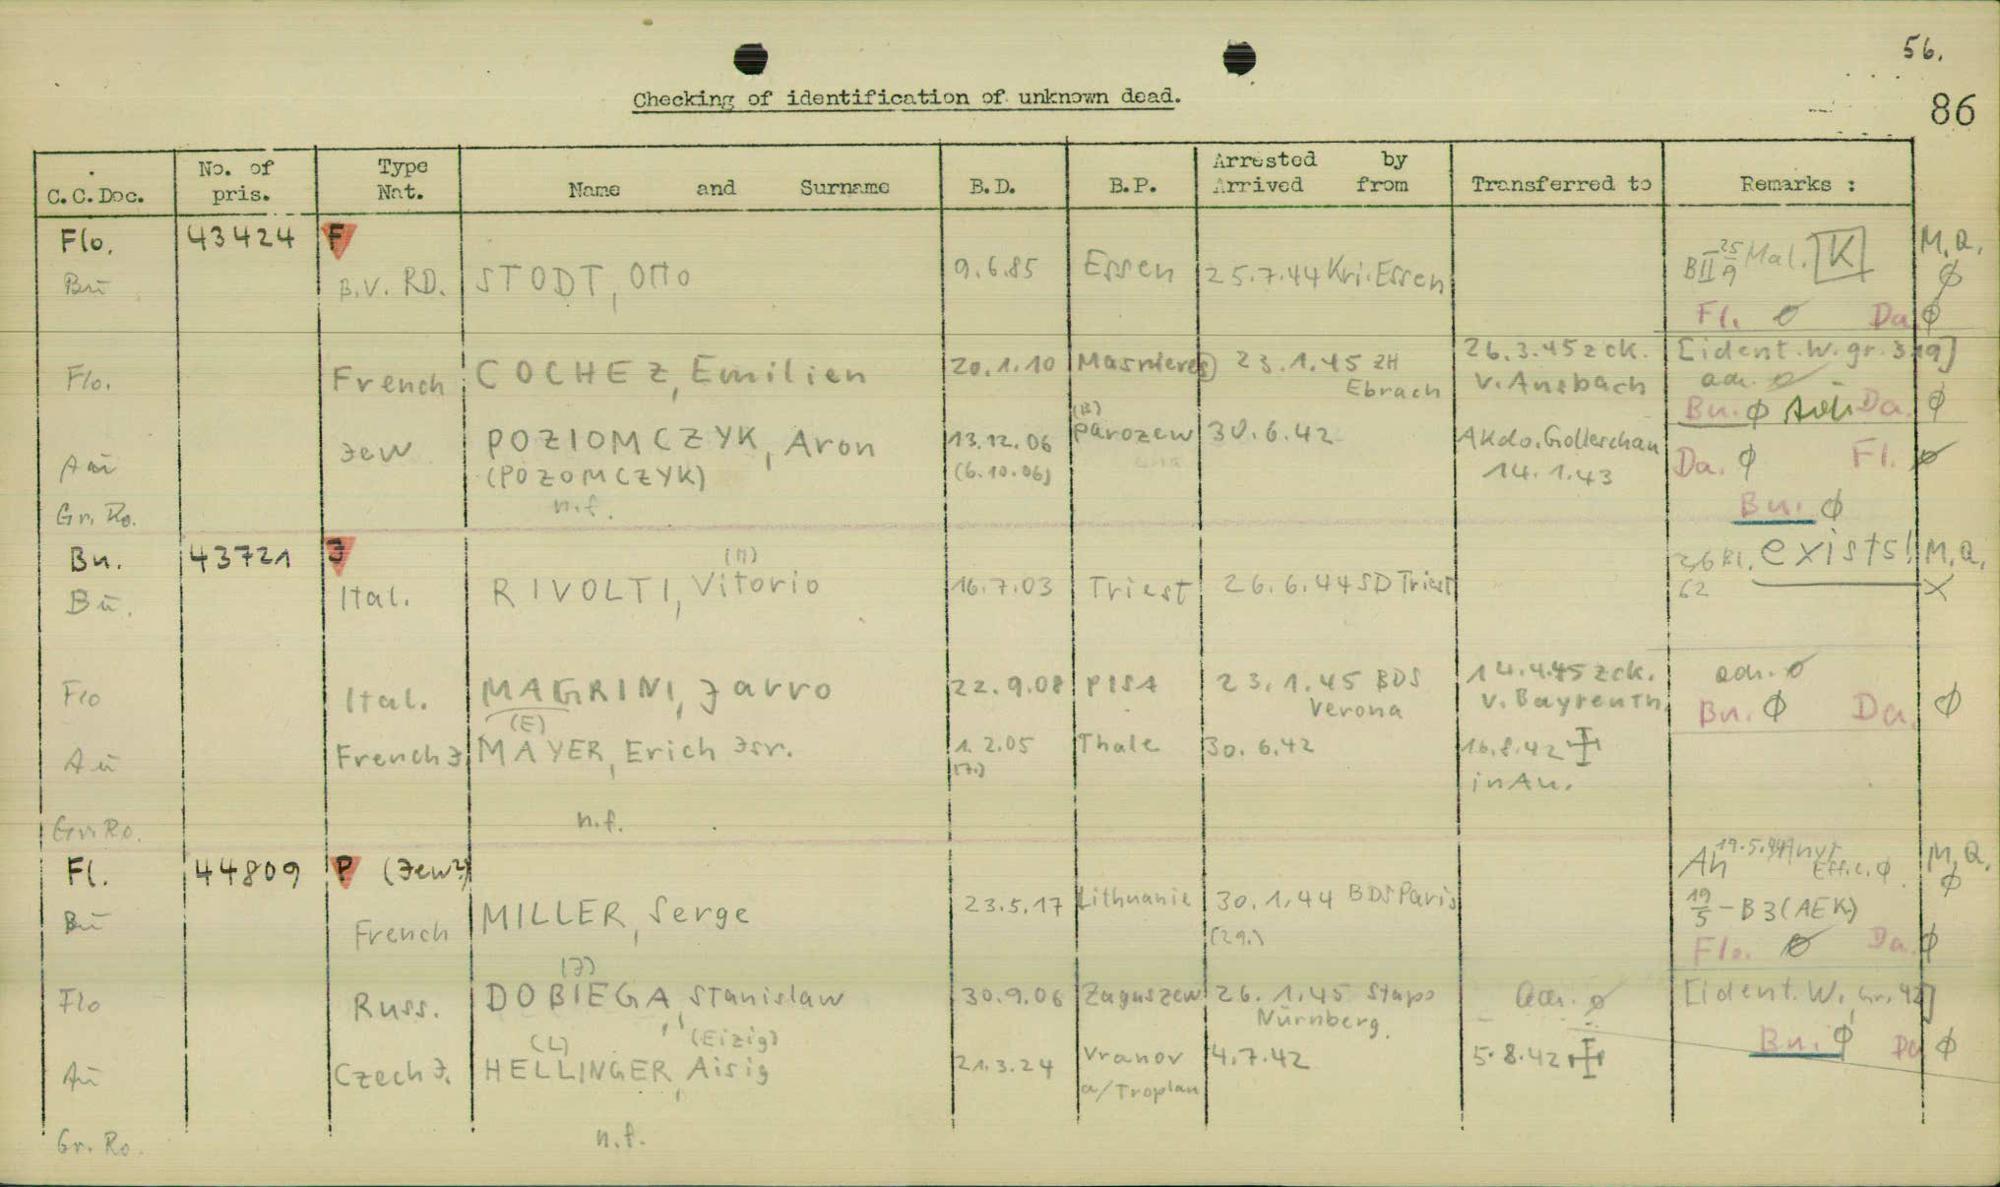 56.
86
Checking of identification of unknown dead.
C.C.Doc. No. of pris. Type Nat. Name and Surname B.D. B.P. Arrested by Arrived from Transferred to Remarks :
Flo. 43424 F M.Q.
Bu B.V. RD. STODT, Otto 9.6.85 Essen 25.7.44 Kri. Essen BII 25/9 Mal. K Ø
Fl. Ø Da. Ø
Flo. French COCHEZ, Emilien 20.1.10 23.1.45 ZH Ebrach 26.3.45 zck. v. Ansbach [ident. W. gr. 319]
Bu. Ø Da. Ø
Au Jew POZIOMCZYK, Aron 13.12.06 (B) Parozew 30.6.42 AKdo. Golleschau 14.1.43 Da. Ø Fl. Ø
(POZOMCZYK) (6.10.06)
Gr. Ro. n.f. Bu. Ø
Bu. 43721 J exists! M.Q.
Bu. Ital. RIVOLTI, Vitorio (tt) 16.7.03 Triest 26.6.44 SD Triest 62 X
Flo Ital. MAGRINI, Jarro 22.9.08 PISA 23.1.45 BDS Verona 14.4.45 zck. v. Bayreuth adr. Ø
Bu. Ø Da. Ø
(E)
Au French J. MAYER, Erich Isr. 1.2.05 Thale 30.6.42 16.8.42 in Au.
(7.)
Gr. Ro. n.f.
Fl. 44809 P (Jew?) Ah 19.5.44 Effec. Ø M.Q.
Bu French MILLER, Serge 23.5.17 Lithuanie 30.1.44 BDS Paris 19/5 - B3 (AEK) Ø
(29.) Flo. Ø Da. Ø
(J)
Flo Russ. DOBIEGA, Stanislaw 30.9.06 Zaguszew 26.1.45 Stapo Nürnberg. adr. Ø [ident. W, Gr. 42]
Bu. Ø Da Ø
(L) (Eizig)
Au Czech J. HELLINGER, Aisig 21.3.24 Vranov a/Troplau 4.7.42 5.8.42
Gr. Ro. n.f.